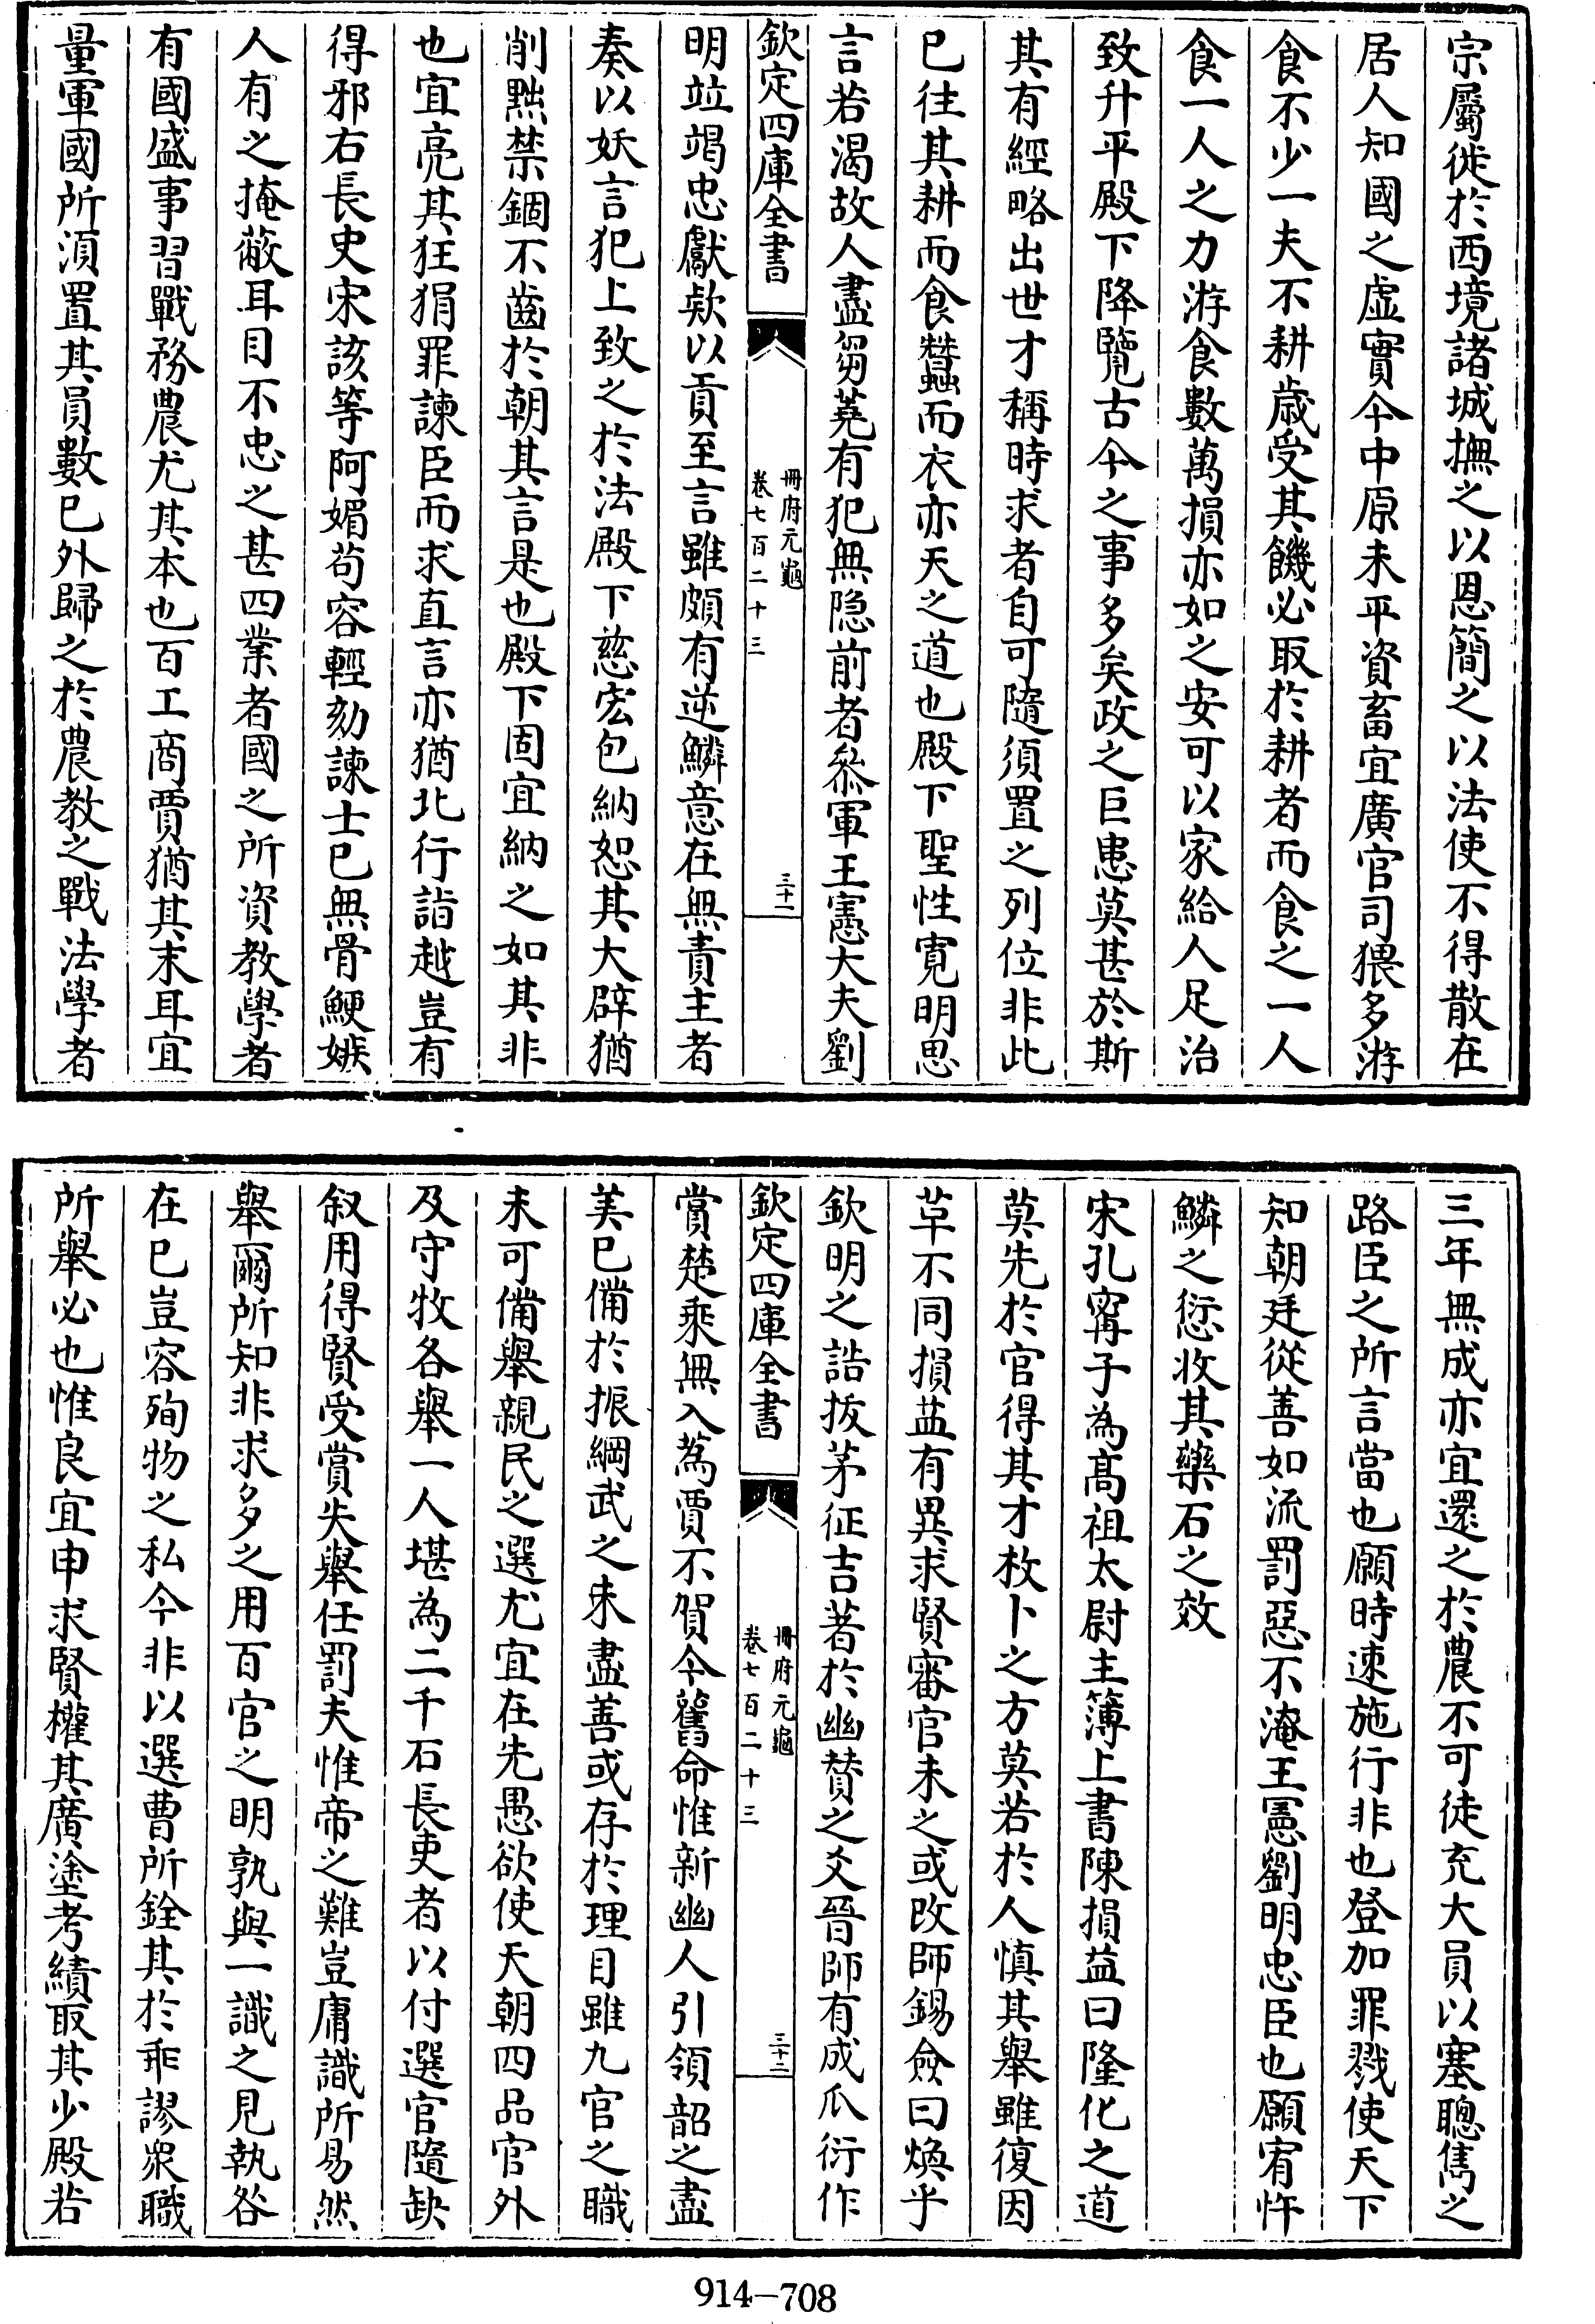 宗屬徙於西境諸城撫之以恩簡之以法使不得散在
居人知國之虛實今中原未平資畜宜廣官司猥多游
食不少一夫不耕歲受其饑必取於耕者而食之一人
食一人之力游食數萬損亦如之安可以家給人足治
致升平殿下降覽古今之事多矣政之巨患莫甚於斯
其有經略出世才稱時求者自可隨須置之列位非此
已往其耕而食蠶而衣亦天之道也殿下聖性寛明思
言若渴故人盡芻蕘有犯無隐前者叅軍王憲大夫劉
欽定四庫全書
冊府元龜
卷七百二十三
三十一
明竝竭忠獻欵以貢至言雖頗有逆鱗意在無責主者
奏以妖言犯上致之於法殿下慈宏包納恕其大辟猶
削黜禁錮不齒於朝其言是也殿下固宜納之如其非
也宜亮其狂狷罪諫臣而求直言亦猶北行詣越豈有
得邪右長史宋該等阿媚苟容輕劾諫士已無骨鯁嫉
人有之掩蔽耳目不忠之甚四業者國之所資教學者
有國盛事習戰務農尤其本也百工商賈猶其末耳宜
量軍國所須置其員數已外歸之於農教之戰法學者
三年無成亦宜還之於農不可徒充大員以塞聰雋之
路臣之所言當也願時速施行非也登加罪戮使天下
知朝廷從善如流罰惡不淹王憲劉明忠臣也願宥忤
鱗之愆收其藥石之效
宋孔甯子為高祖太尉主簿上書陳損益曰隆化之道
莫先於官得其才枚卜之方莫若於人慎其舉雖復因
革不同損益有異求賢審官未之或改師錫僉曰煥乎
欽明之誥拔茅征吉著於幽賛之爻晉師有成瓜衍作
欽定四庫全書
冊府元龜
卷七百二十三
三十二
賞楚乘無入蒍賈不賀今舊命惟新幽人引領韶之盡
美已備於振綱武之未盡善或存於理目雖九官之職
未可備舉親民之選尤宜在先愚欲使天朝四品官外
及守牧各舉一人堪為二千石長吏者以付選官隨缺
叙用得賢受賞失舉任罰夫惟帝之難豈庸識所易然
舉爾所知非求多之用百官之明孰與一識之見執咎
在已豈容殉物之私今非以選曹所銓其於乖謬眾職
所舉必也惟良宜申求賢權其廣塗考績取其少殿若
914-708